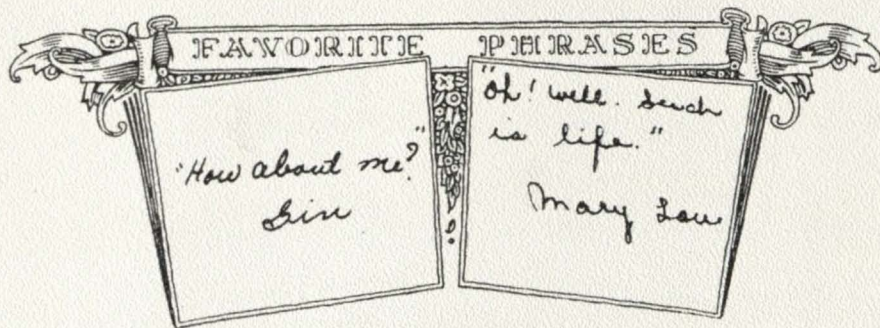 FAVORITE PHRASES
"How about me?"
Gin
"Oh! well. Such
is life."
Mary Lou